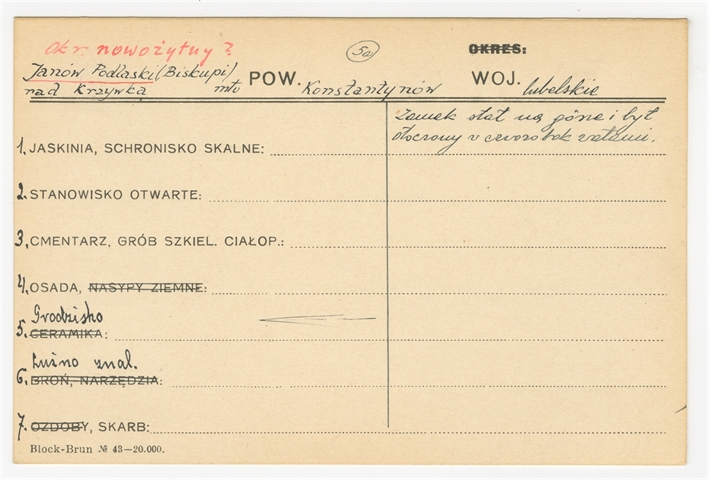 Okr. nowożytny?
50
OKRES:
Janów Podlaski (Biskupi)
nad Krzywką mto POW. Konstantynów WOJ. lubelskie
Zamek stał na górze i był
otoczony w czworobok wałami.
1. JASKINIA, SCHRONISKO SKALNE:
2. STANOWISKO OTWARTE:
3. CMENTARZ, GRÓB SZKIEL. CIAŁOP.:
4. OSADA, NASYPY ZIEMNE:
Grodzisko
5. CERAMIKA:
Luźno znal.
6. BROŃ, NARZĘDZIA:
7. OZDOBY, SKARB:
Block-Brun № 43—20.000.